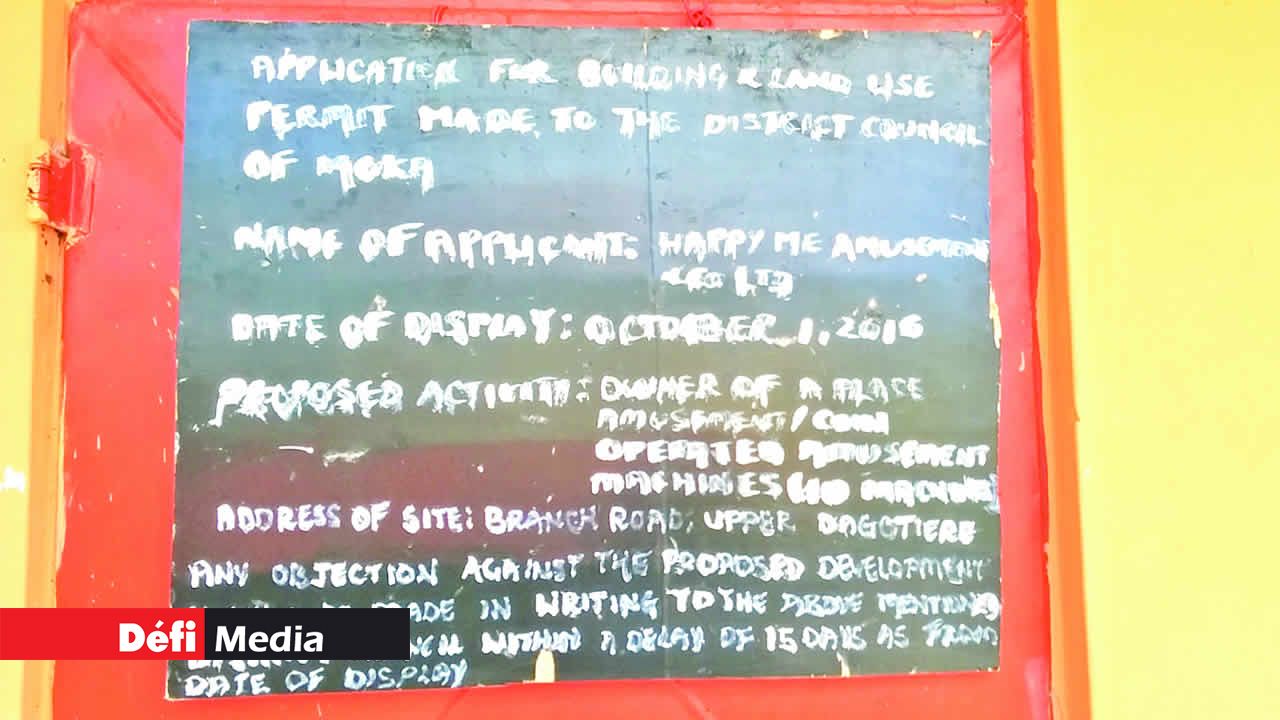 APPLICATION FOR BUILDING & LAND USE
PERMIT MADE TO THE DISTRICT COUNCIL
OF MOKA
NAME OF APPLICANT: HAPPY ME AMUSEMENT
& CO LTD
DATE OF DISPLAY: OCTOBER 1, 2016
PROPOSED ACTIVITY: OWNER OF A PLACE
AMUSEMENT/COIN
OPERATED AMUSEMENT
MACHINES
ADDRESS OF SITE: BRANCH ROAD, UPPER DAGOTIERE
ANY OBJECTION AGAINST THE PROPOSED DEVELOPMENT
MADE IN WRITING TO THE ABOVE MENTIONED
WITHIN A DELAY OF 15 DAYS AS FROM
DATE OF DISPLAY
Défi Media